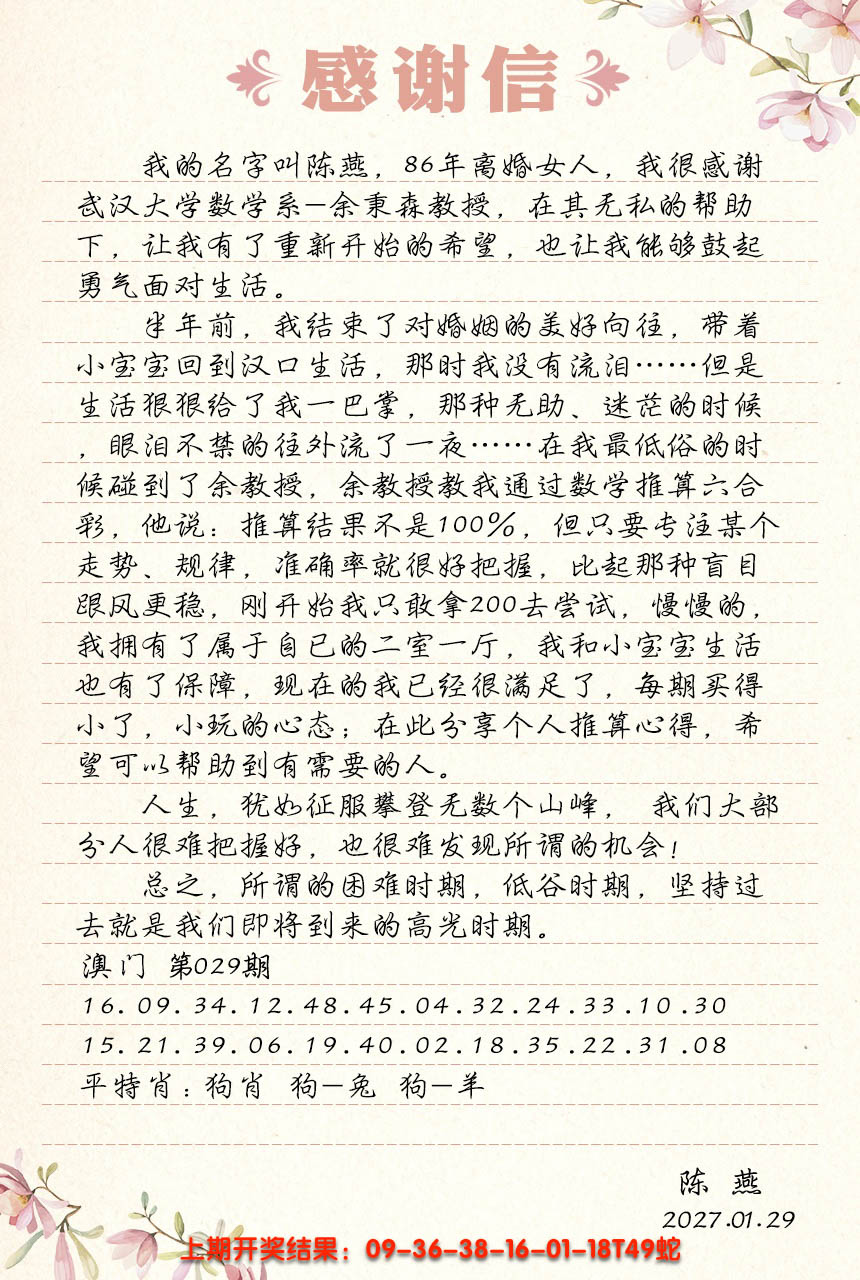 感谢信
我的名字叫陈燕，86年离婚女人，我很感谢
武汉大学数学系—余秉森教授，在其无私的帮助
下，让我有了重新开始的希望，也让我能够鼓起
勇气面对生活。
半年前，我结束了对婚姻的美好向往，带着
小宝宝回到汉口生活，那时我没有流泪……但是
生活狠狠给了我一巴掌，那种无助、迷茫的时候
，眼泪不禁的往外流了一夜……在我最低俗的时
候碰到了余教授，余教授教我通过数学推算六合
彩，他说：推算结果不是100%，但只要专注某个
走势、规律，准确率就很好把握，比起那种盲目
跟风更稳，刚开始我只敢拿200去尝试，慢慢的，
我拥有了属于自己的二室一厅，我和小宝宝生活
也有了保障，现在的我已经很满足了，每期买得
小了，小玩的心态；在此分享个人推算心得，希
望可以帮助到有需要的人。
人生，犹如征服攀登无数个山峰， 我们大部
分人很难把握好，也很难发现所谓的机会！
总之，所谓的困难时期，低谷时期，坚持过
去就是我们即将到来的高光时期。
澳门 第029期
16.09.34.12.48.45.04.32.24.33.10.30
15.21.39.06.19.40.02.18.35.22.31.08
平特肖：狗肖 狗—兔 狗—羊
陈 燕
2027.01.29
上期开奖结果：09-36-38-16-01-18T49蛇